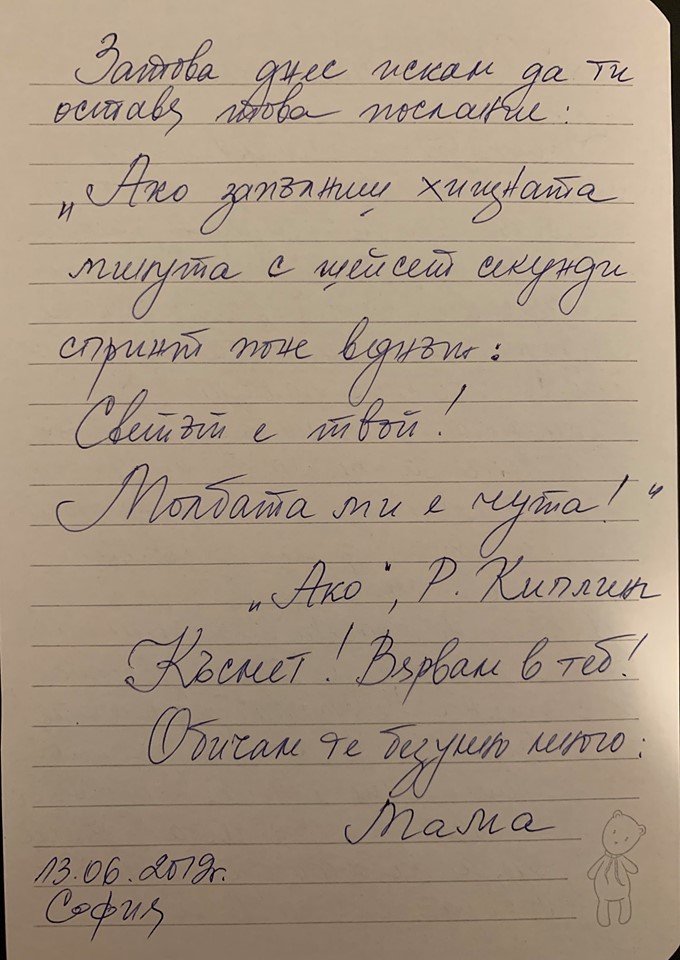 Затова днес искам да ти
оставя това послание:
„Ако запълниш хищната
минута с шейсет секунди
спринт поне веднъж:
Светът е твой!
Молбата ми е чута!“
„Ако“, Р. Киплин
Късмет! Вярвам в теб!
Обичам те безумно много:
Мама
13.06.2019г.
София